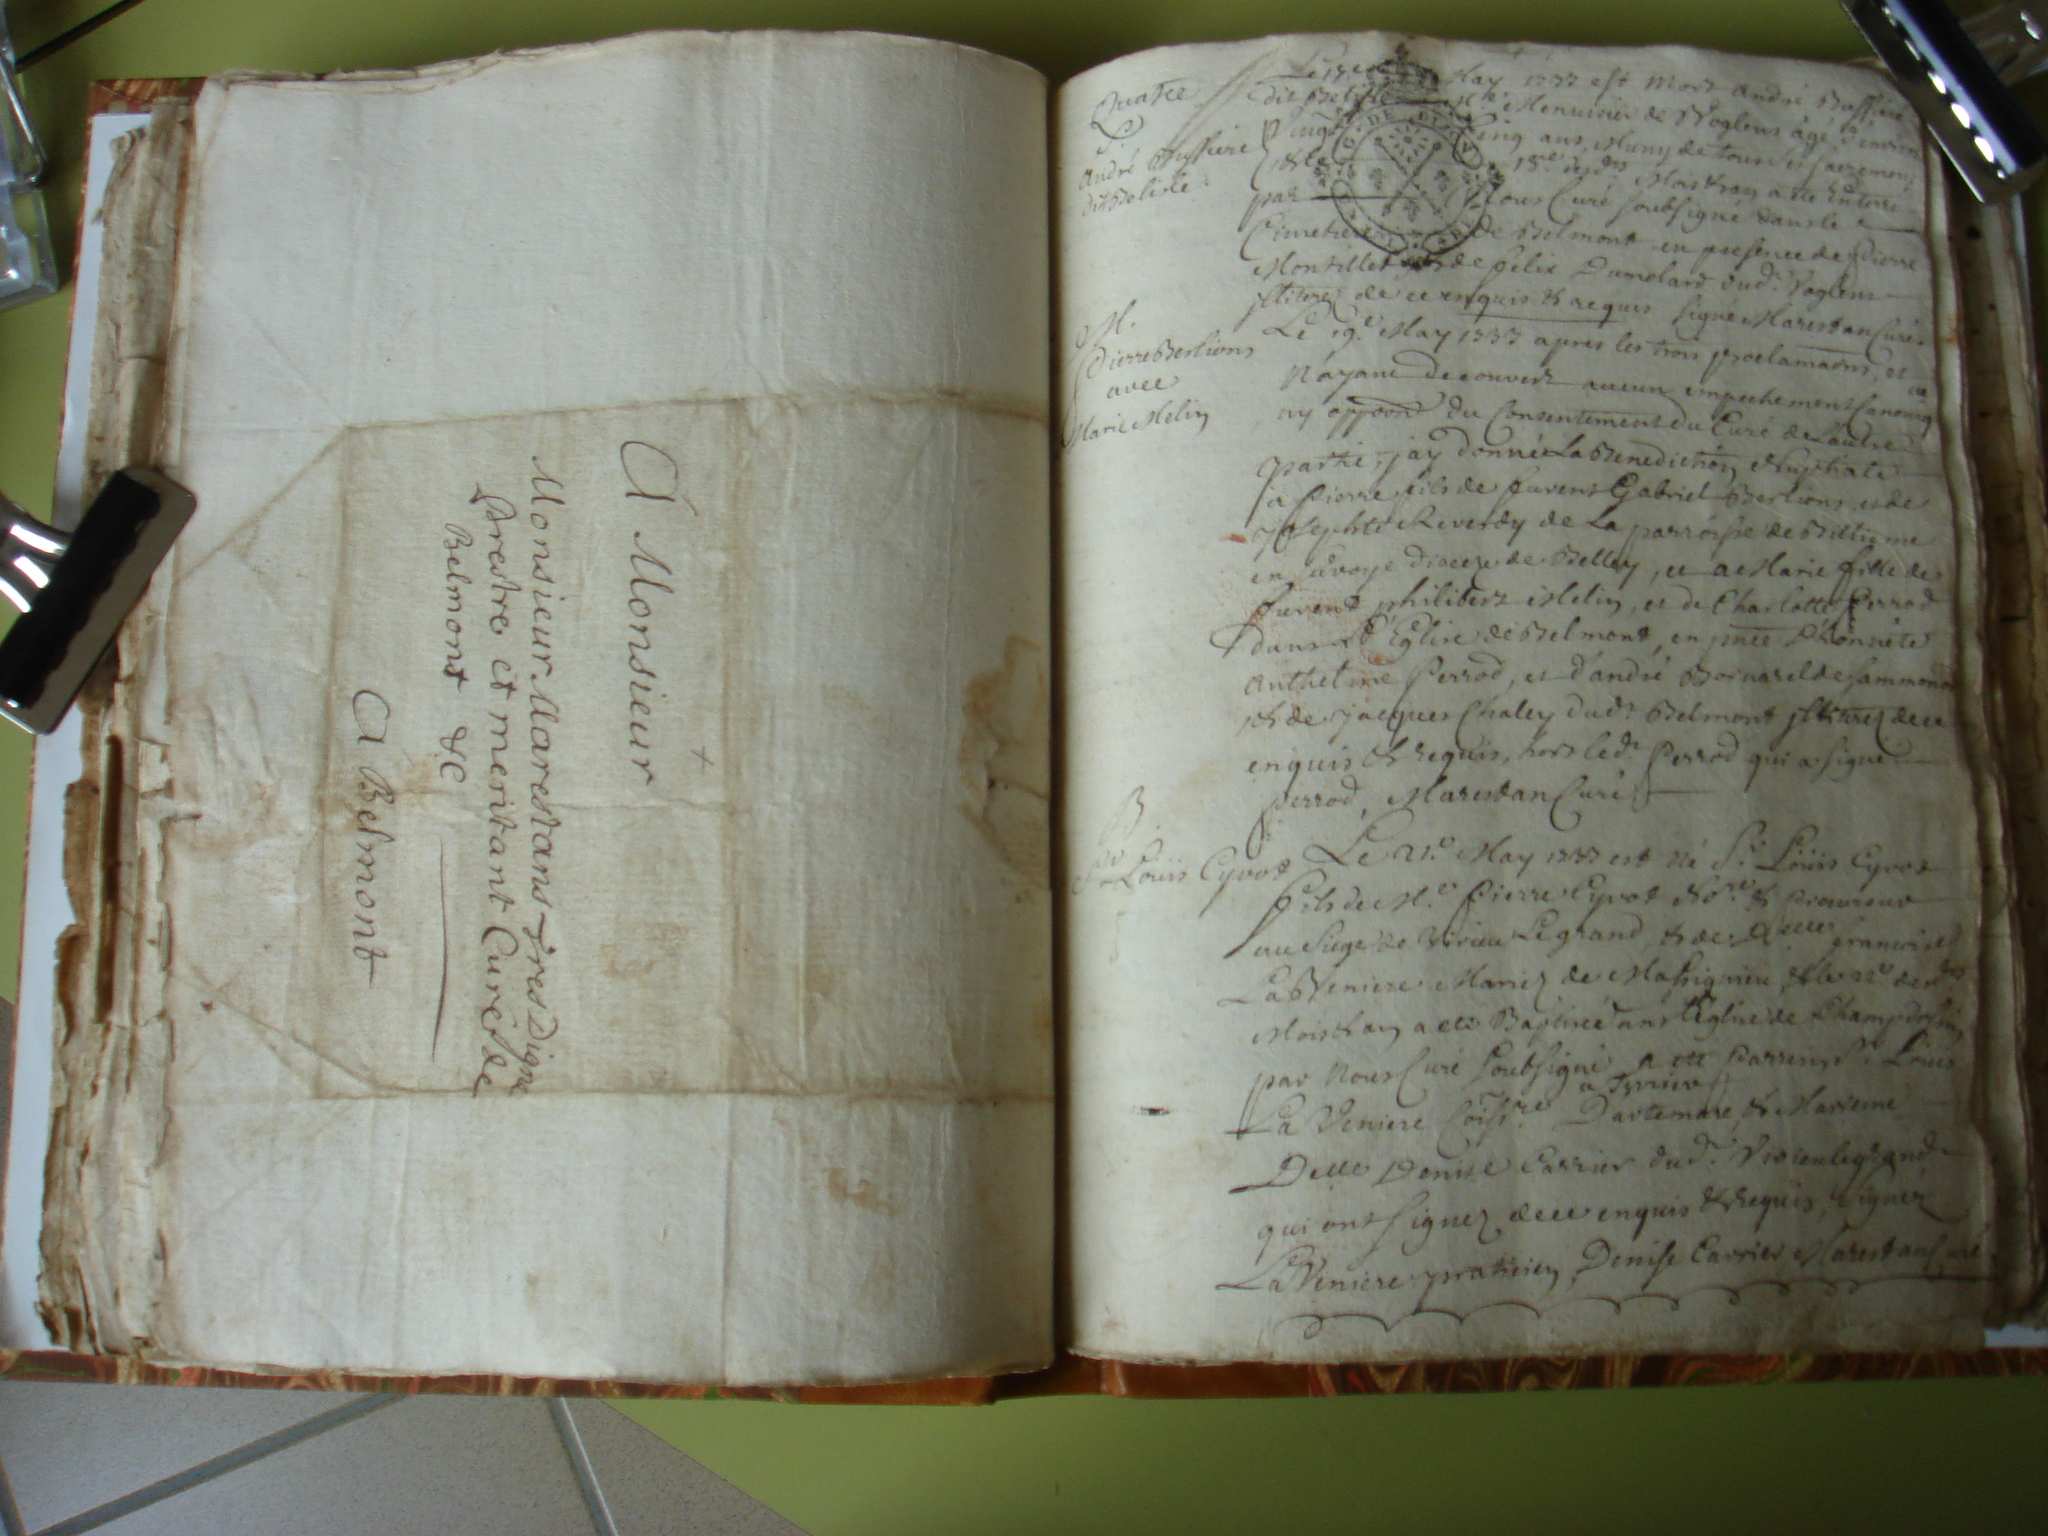 A Monsieur
Monsieur Marestans Tres Digne
Prestre et meritant Curé de
Belmont &c
A Belmont
Quatre
S.
André Buffiere
dit Belisle
May 1737 est Mort André Buffiere
dit Menuisier de Voglens âgé d'environ
Vingt cinq ans, Muny de tous les sacremens
& le 18e. Moistray a ete Enterré
par Nous Curé soubsigné dans le
Cimetiere de Belmont en presence de Pierre
Montillet & de felix Dumolard dud. Voglens
jllitrez de ce enquis & requis signé Marestan Curé.
M.
Pierre Berlions
avec
Marie Melin
Le 19e. May 1737 apres les trois proclamaons, et
N'ayant decouvert aucun empechement Canoniq
ny opposont du Consentement du Curé de L'autre
partie, jay donné La Benediction Nuptiale
a Pierre fils de furent Gabriel Berlions, et de
josephte Reverdy de La parroisse de Billieme
en Savoye Dioceze de Belley, et a Marie fille de
furent philibert Melin, et de Charlotte Perrod
dans L'Eglise de Belmont, en pnce d'honnête
Anthelme Perrod, et d'andré Bornarel de Sammonod
& de jacques Chaley dud. Belmont jllitrez de ce
enquis & requis, hors led. Perrod qui a signé
perrod, Marestan Curé
B.
Sr. Loüis Eyvot
Le 21e. May 1737 est Né Sr. Loüis Eyvot
fils de Me. Pierre Eyvot Nore. & Procureur
au Siege de Virieu Le grand, & de Delle francoise
La Veniere Mariez de Massignieu, & le 22e. desd.
Mois & an a ete Baptisé dans L'Eglise de Champdossin
par Nous Curé soubsigné a ete Parrein Sr. Loüis
La Veniere Comsre. a Terrier Dartemare, & Mareine
Delle Denise Carrier dud. Virieu le grand
qui ont signez de ce enquis & requis, signez
La Veniere praticien, Denise Carrier Marestan Curé